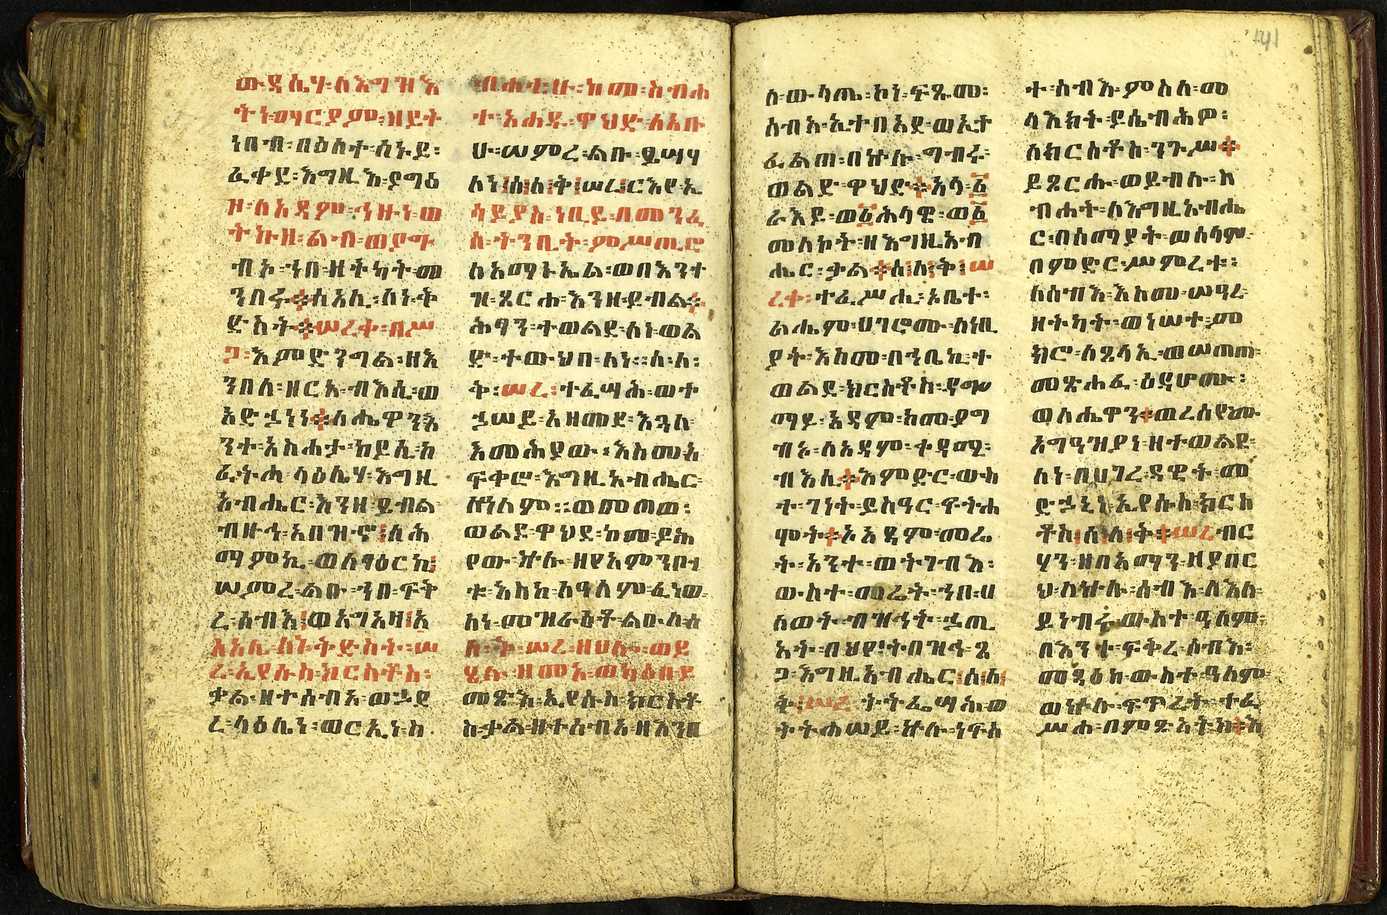 ውዳሴሃ፡ለእግዝእ
ትነ፡ማርያም፡ዘይት
ነበብ፡በዕለተ፡ሰኑይ፡
ፈቀደ፡እግዚእ፡ያግዕ
ዞ፡ለአዳም፡ኅዙነ፡ወ
ትኩዘ፡ልብ፡ወያግ
ብኦ፡ኀበ፡ዘትካት፡መ
ንበሩ፡፨ሰአሊ፡ለነ፡ቅ
ድስት፡፨ሠረቀ፡በሥ
ጋ፡እምድንግል፡ዘእ
ንበለ፡ዘርአ፡ብእሲ፡ወ
አድኃነነ፨ለሔዋን፡እ
ንተ፡አስሐታ፡ከይሲ፡አ
ፈትሐ፡ላዕሌሃ፡እግዚ
አብሔር፡እንዘ፡ይብል
ብዙኀ፡አበዝኖ፡ለሕ
ማምኪ፡ወለፃዕርኪ፡
ሠምረ፡ልቡ፡ኀበ፡ፍቅ
ረ፡ሰብእ፡ወአግአዛ፡ሰ
አሊ፡ለነ፡ቅድስት፡ሠ
ረ፡ኢየሱስ፡ክርስቶስ፡
ቃል፡ዘተሰብአ፡ወኃደ
ረ፡ላዕሌነ፡ወርኢነ፡ስ
ብሐቲሁ፡ከመ፡ስብሐ
ተ፡አሐዱ፡ዋህድ፡ለአቡ
ሁ፡ሠምረ፡ልቡ፡ይሣሃ
ለነ፡ሰ፡ለ፡ቅ፡ሠረ፡ርእየ፡ኢ
ሳይያስ፡ነቢይ፡በመንፈ
ስ፡ትንቢት፡ምሥጢሮ
ለአማኑኤል፡ወበእንተ
ዝ፡ጸርሐ፡እንዘ፡ይብል፨
ሕፃን፡ተወልደ፡ለነ፡ወል
ድ፡ተውህበ፡ለነ።ሰ፡ለ፡
ቅ፡ሠረ፡ተፈሣሕ፡ወተ
ኃሠይ፡አዘመደ፡እጓለ፡
እመሕያው፡እስመ፡አ
ፍቀሮ፡እግዚአብሔር፡
ለዓለም።ወመጠወ፡
ወልደ፡ዋህደ፡ከመ፡ይሕ
የው፡ኵሉ፡ዘየአምን፡ቦ
ቱ፡እስከ፡ለዓለም፡ፈነወ፡
ለነ፡መዝራዕቶ፡ልዑለ፡ሰ
ለ፡ቅ፡ሠረ፡ዘሀሎ፡ወይ
ሄሉ፡ዘመጽአ፡ወካዕበ፡ይ
መጽእ፡ኢየሱስ፡ክርስቶ
ስ፡ቃል፡ዘተሰብአ፡ዘእንበ
ለ፡ውላጤ፡ኮነ፡ፍጹመ፡
ሰብአ፡ኢተበአደ፡ወኢተ
ፈልጠ፡በኵሉ፡ግብሩ፡
ወልድ፡ዋህድ፨አላ፡፩
ራእይ፡ወ፩ህላዌ፡ወ፩
መለኮት፡ዘእግዚአብ
ሔር፡ቃል፨ሰ፡ለ፡ቅ፡ሠ
ረቀ፡ተፈሥሒ፡ኦቤተ፡
ልሔም፡ሀገሮሙ፡ለነቢ
ያት፡እስመ፡በኀቤኪ፡ተ
ወልደ፡ክርስቶስ፡ዳግ
ማይ፡አዳም፡ከመ፡ያግ
ብኦ፡ለአዳም፡ቀዳሚ፡
ብእሲ፨እምድር፡ውስ
ተ፡ገነት፡ይስዓር፡ፍትሐ
ሞት፨ኦአዳም፡መሬ
ት፡አንተ፡ወትገብእ፡
ውስተ፡መሬት፡ኀበ፡ሀ
ለወት፡ብዝኅት፡ኃጢ
አት፡በህየ፡ትበዝኅ፡ጸ
ጋ፡እግዚአብሔር፡ሰ፡ለ፡
ቅ፡ሠረ፡ትትፌሣሕ፡ወ
ትትሐሠይ፡ኵሉ፡ነፍሰ
ተ፡ሰብእ፡ምስለ፡መ
ላእክት፡ይሴብሕዎ፡
ለክርስቶስ፡ንጉሥ፨
ይጸርሑ፡ወይብሉ፡ስ
ብሐት፡ለእግዚአብሔ
ር፡በሰማያት፡ወሰላም
በምድር፡ሥምረቱ፡
ለሰብእ፡እስመ፡ሠዓረ፡
ዘትካት፡ወነሠተ፡ም
ክሮ፡ለጸላኢ፡ወሠጠጠ፡
መጽሐፈ፡ዕዳሆሙ፡
ወለሔዋን፨ወረሰዮሙ
አግዓዝያነ፡ዘተወልደ፡
ለነ፡በሀገረ፡ዳዊት፡መ
ድኃኒነ፡ኢየሱስ፡ክርስ
ቶስ፡ሰ፡ለ፡ቅ፡ሠረ፡ብር
ሃን፡ዘበአማን፡ዘያበር
ህ፡ለኵሉ፡ሰብእ፡ለእለ፡
ይነብሩ፡ውስተ፡ዓለም፡
በእንተ፡ፍቅረ፡ሰብእ፡
መጻእከ፡ውስተ፡ዓለም፡
ወኵሉ፡ፍጥረት፡ተፈ
ሥሐ፡በምጽአትከ፨እ